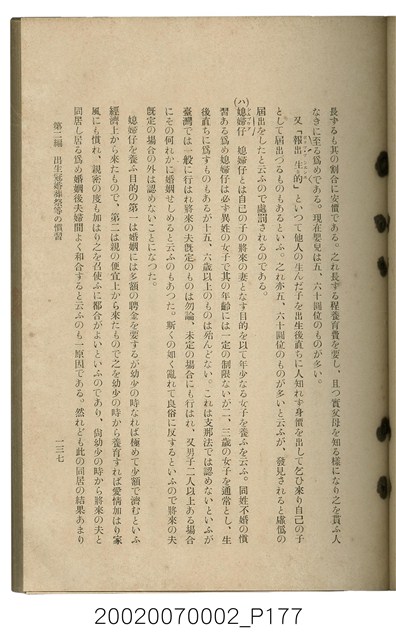 長ずるも其の割合に安價である。之れ長ずる程養育費を要し、且つ實父母を知る樣になり之を貰ふ人
なきに至る爲めである。現在嬰兒は五、六十圓位のものが多い。
又「報出生的」といつて他人の生んだ子を出生後直ちに人知れず身價を出して乞ひ來り自己の子
として屆出づるものもあるといふ。之れ亦五、六十圓位のものが多いと云ふが、發見されると虛僞の
屆出をしたと云ふので處罰されるのである。
(ハ)媳婦仔 媳婦仔とは自己の子の將來の妻となす目的を以て年少なる女子を養ふを云ふ。同姓不婚の慣
習ある爲め媳婦仔は必ず異姓の女子で其の年齡には一定の制限ないが二、三歲の女子を通常とし、生
後直ちに爲すものもあるが十五、六歲以上のものは殆んどない。これは支那法では認めないといふが
臺灣では一般に行はれ將來の夫既定のものは勿論、未定の場合にも行はれ、又男子二人以上ある場合
にその何れかに婚姻せしめると云ふのもあつた。斯くの如く亂れて良俗に反するといふので將來の夫
既定の場合の外は認めないことになつた。
媳婦仔を養ふ目的の第一は婚姻には多額の聘金を要するが幼少の時なれば極めて少額で濟むといふ
經濟上から來たもので、第二は親の便宜上から來たもので之を幼少の時から養育すれば愛情加はり家
風にも慣れ、親密の度も加はり之を召使ふに都合がよいといふのであり、尙幼少の時から將來の夫と
同居し居る爲め婚姻後夫婦間よく和合すると云ふのも一原因である。然れども此の同居の結果あまり
第二編 出生冠婚葬祭等の慣習
一三七
20020070002_P177